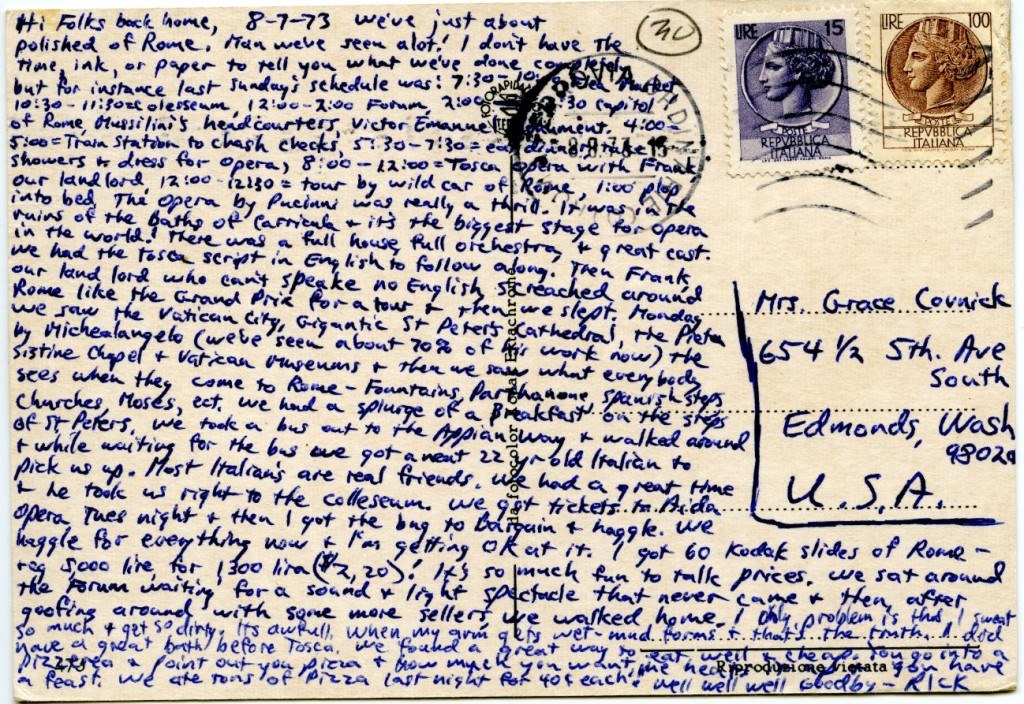 Hi Folks back home, 8-7-73 we've just about
polished of Rome. Man we've seen alot! I don't have the
time, ink, or paper to tell you what we've done completely
but for instance last Sunday's schedule was: 7:30-10: Flea Market
10:30-11:30=colesseum 12:00-2:00 Forum 2:00 :30 capitol
of Rome Mussilini's headcourters, Victor Emanue onument. 4:00-
5:00=Train Station to chash checks, 5:30-7:30= eat dinner take
showers + dress for opera, 8:00-12:00=Tosca opera with Frank
our landlord, 12:00-12:30= tour by wild car of Rome, 1:00 plop
into bed. The opera by Puccinni was really a thrill. It was in the
ruins of the Baths of Carricula + it's the biggest stage for opera
in the world! There was a full house, full orchestra, + great cast.
we had the Tosca script in English to follow along. Then Frank
our land lord who can't speake no English, screached around
Rome like the Grand Prix for a tour + then we slept. Monday
we saw the Vatican City, Gigantic St Peter's Cathedral, the Pieta
by Michealangelo (we've seen about 70% of his work now) the
Sistine Chapel + Vatican Museums + then we saw what everybody
sees when they come to Rome - Fountains, Parthanone, Spanish Steps
Churches, Moses, ect. we had a splurge of a Breakfast on the steps
of St Peters, we took a bus out to the Appian way + walked around
+ while waiting for the bus we got a neat 22 yr old Italian to
pick us up. Most Italian's are real friends. we had a great time
+ he took us right to the colleseum. we got tickets to Aida
Opera Tues night + then I got the bug to Barguin + haggle. We
haggle for everything now + I'm getting OK at it. I got 60 Kodak slides of Rome-
reg 5,000 lire for 1300 lira ($2,20)! It's so much fun to talk prices. we sat around
the Forum waiting for a sound + light spectacle that never came + then, after
goofing around with some more sellers, we walked home. I only problem is that I sweat
so much + get so dirty, its awfull, when my arm gets wet-mud forms + that's the truth. I did
have a great bath before Tosca. we found a great way to eat well + cheap. You go into a
pizzarea + point out you pizza + how much you want, you have
a feast. We ate tons of Pizza last night for 40¢ each. well well well Goodby- RICK
30
LIRE 15
POSTE
REPVBBLICA
ITALIANA
LIRE 100
POSTE
REPVBBLICA
ITALIANA
8.8.73-15
Mrs. Grace Covnick
654 1/2 5th. Ave
South
Edmonds, Wash
98020
U.S.A.
FOTORAPIDA
da fotocolor Kodak Ektachrome
Riproduzione vietata